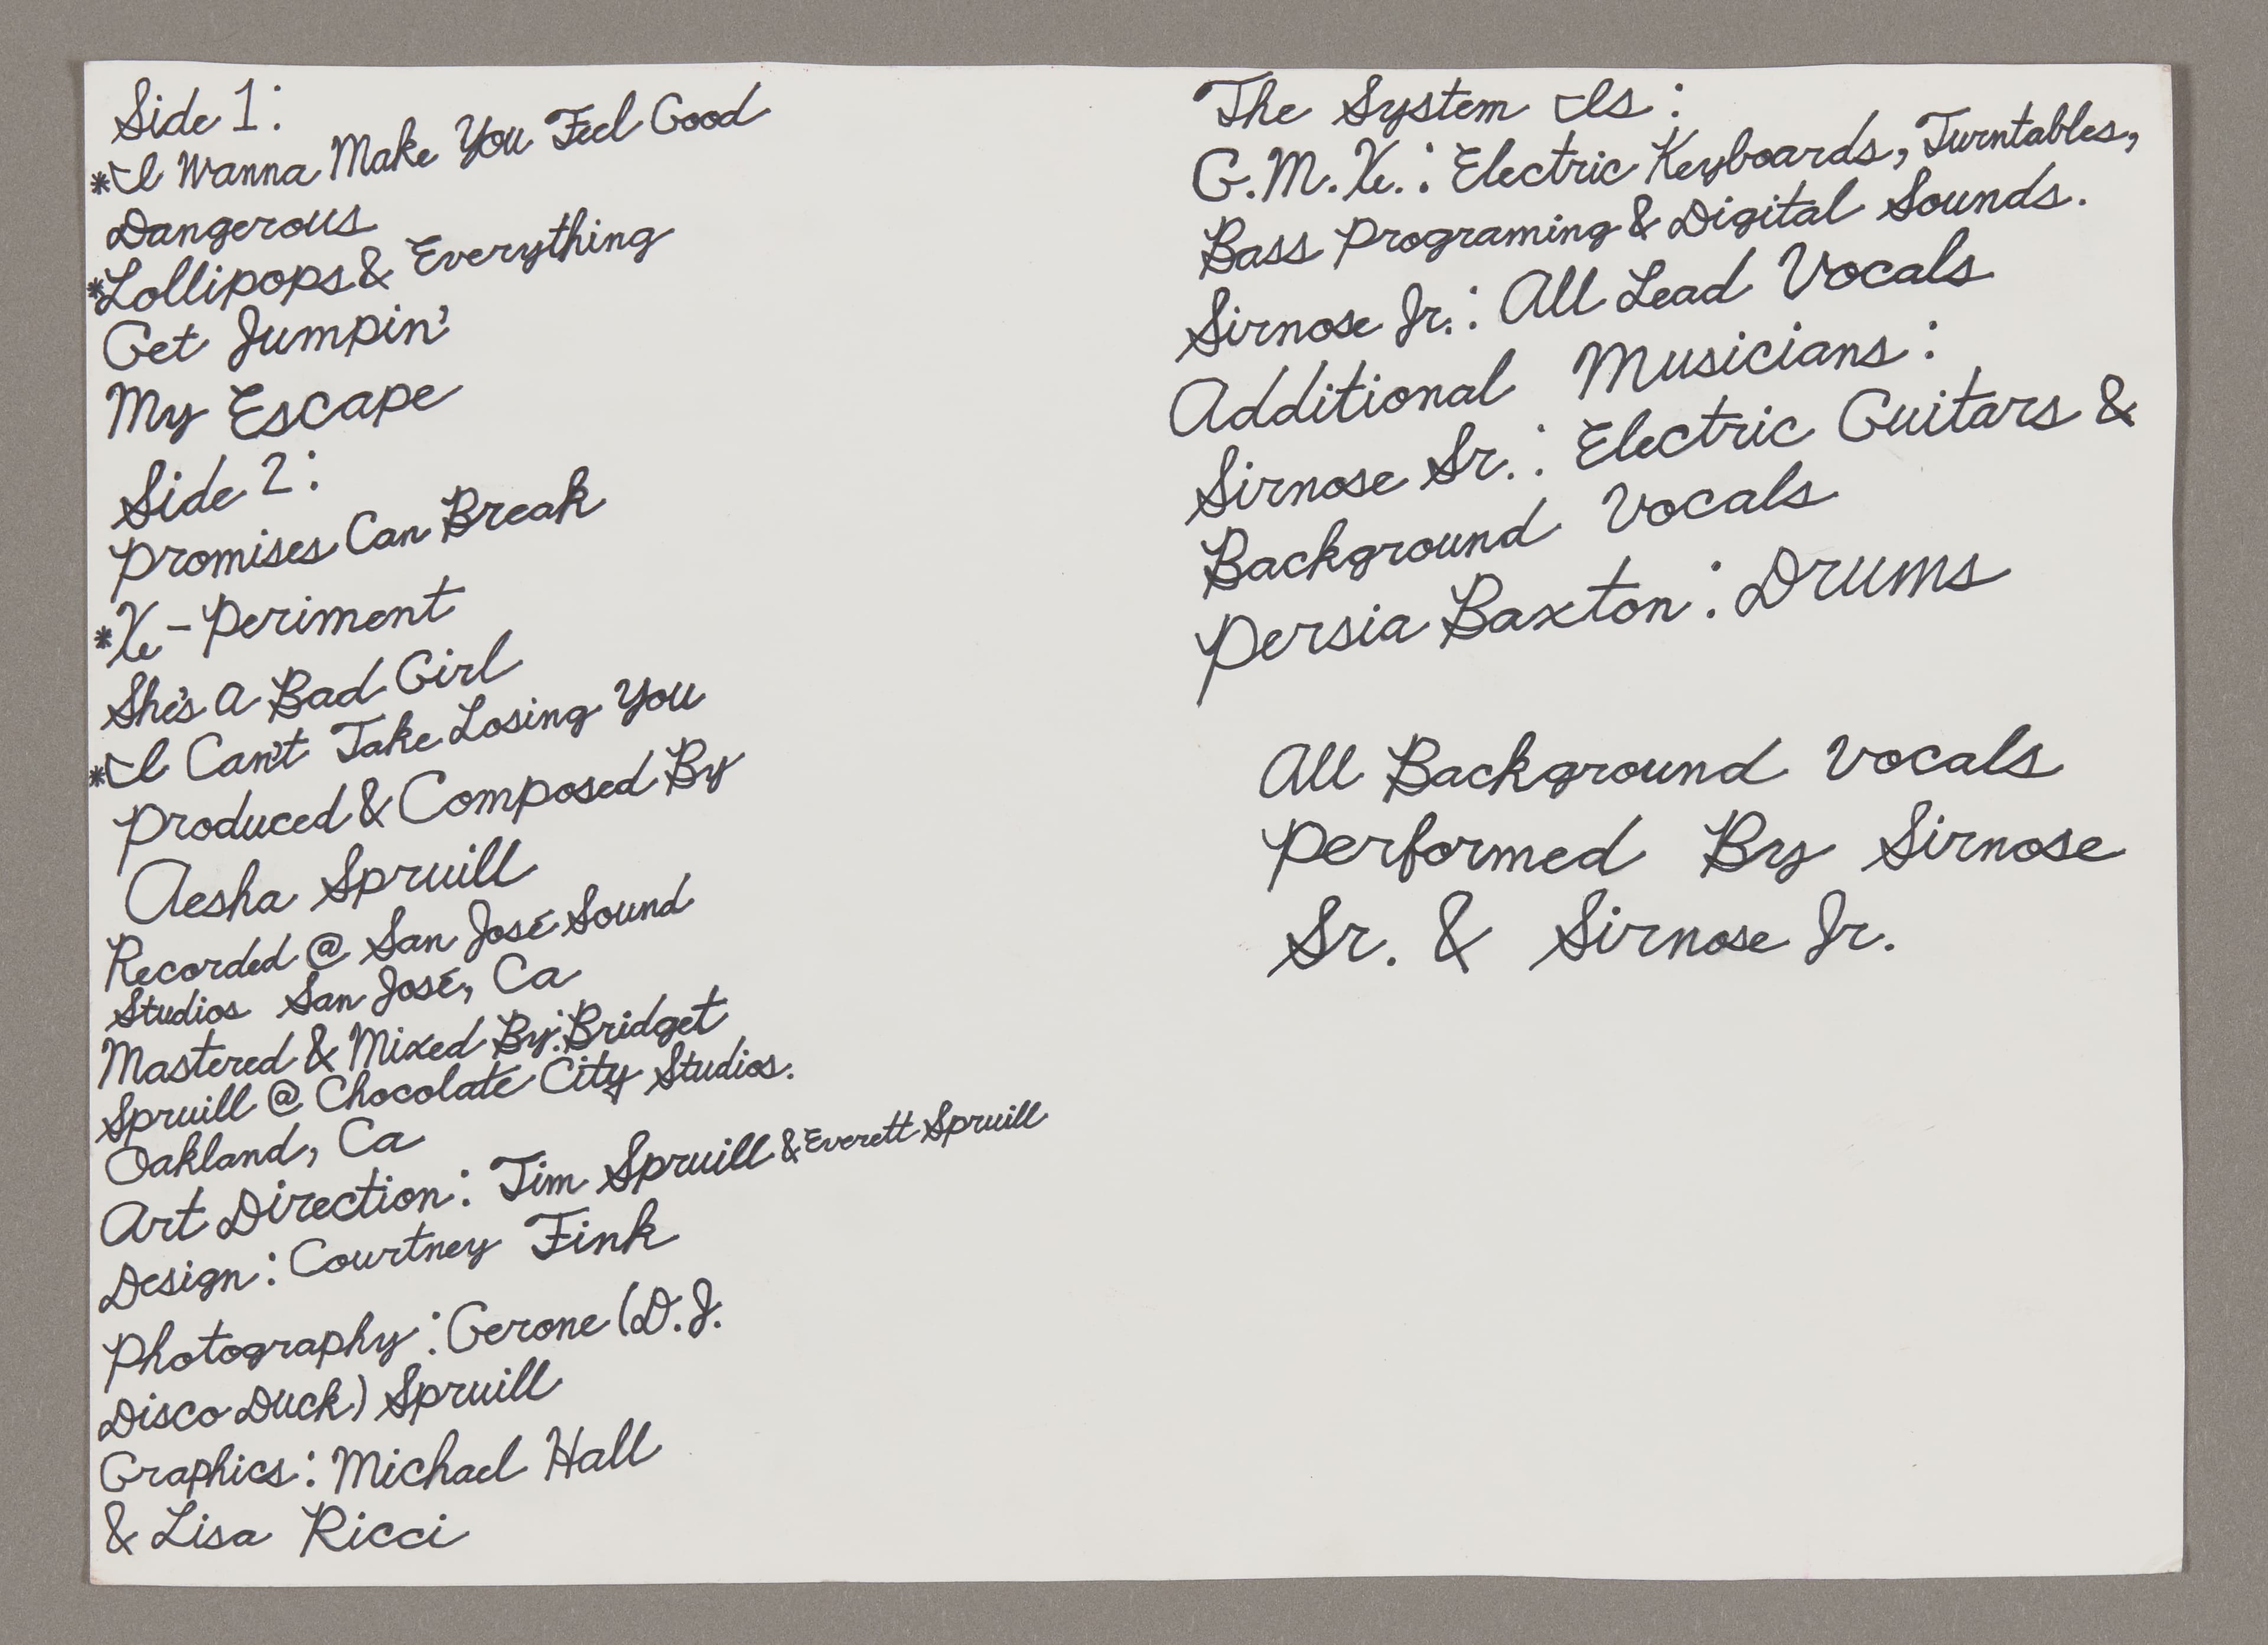 Side 1:
*I Wanna Make You Feel Good
Dangerous
*Lollipops & Everything
Get Jumpin'
My Escape
Side 2:
Promises Can Break
*X-Periment
She's A Bad Girl
*I Can't Take Losing You
Produced & Composed By
Aesha Spruill
Recorded @ San José Sound
Studios San José, Ca
Mastered & Mixed By: Bridget
Spruill @ Chocolate City Studios.
Oakland, Ca
Art Direction: Tim Spruill & Everett Spruill
Design: Courtney Fink
Photography: Gerone (D.J.
Disco Duck) Spruill
Graphics: Michael Hall
& Lisa Ricci
The System Is:
G.M.X.: Electric Keyboards, Turntables,
Bass Programing & Digital Sounds.
Sirnose Jr.: All Lead Vocals
Additional Musicians:
Sirnose Sr.: Electric Guitars &
Background Vocals
Persia Baxton: Drums
All Background Vocals
Performed By Sirnose
Sr. & Sirnose Jr.